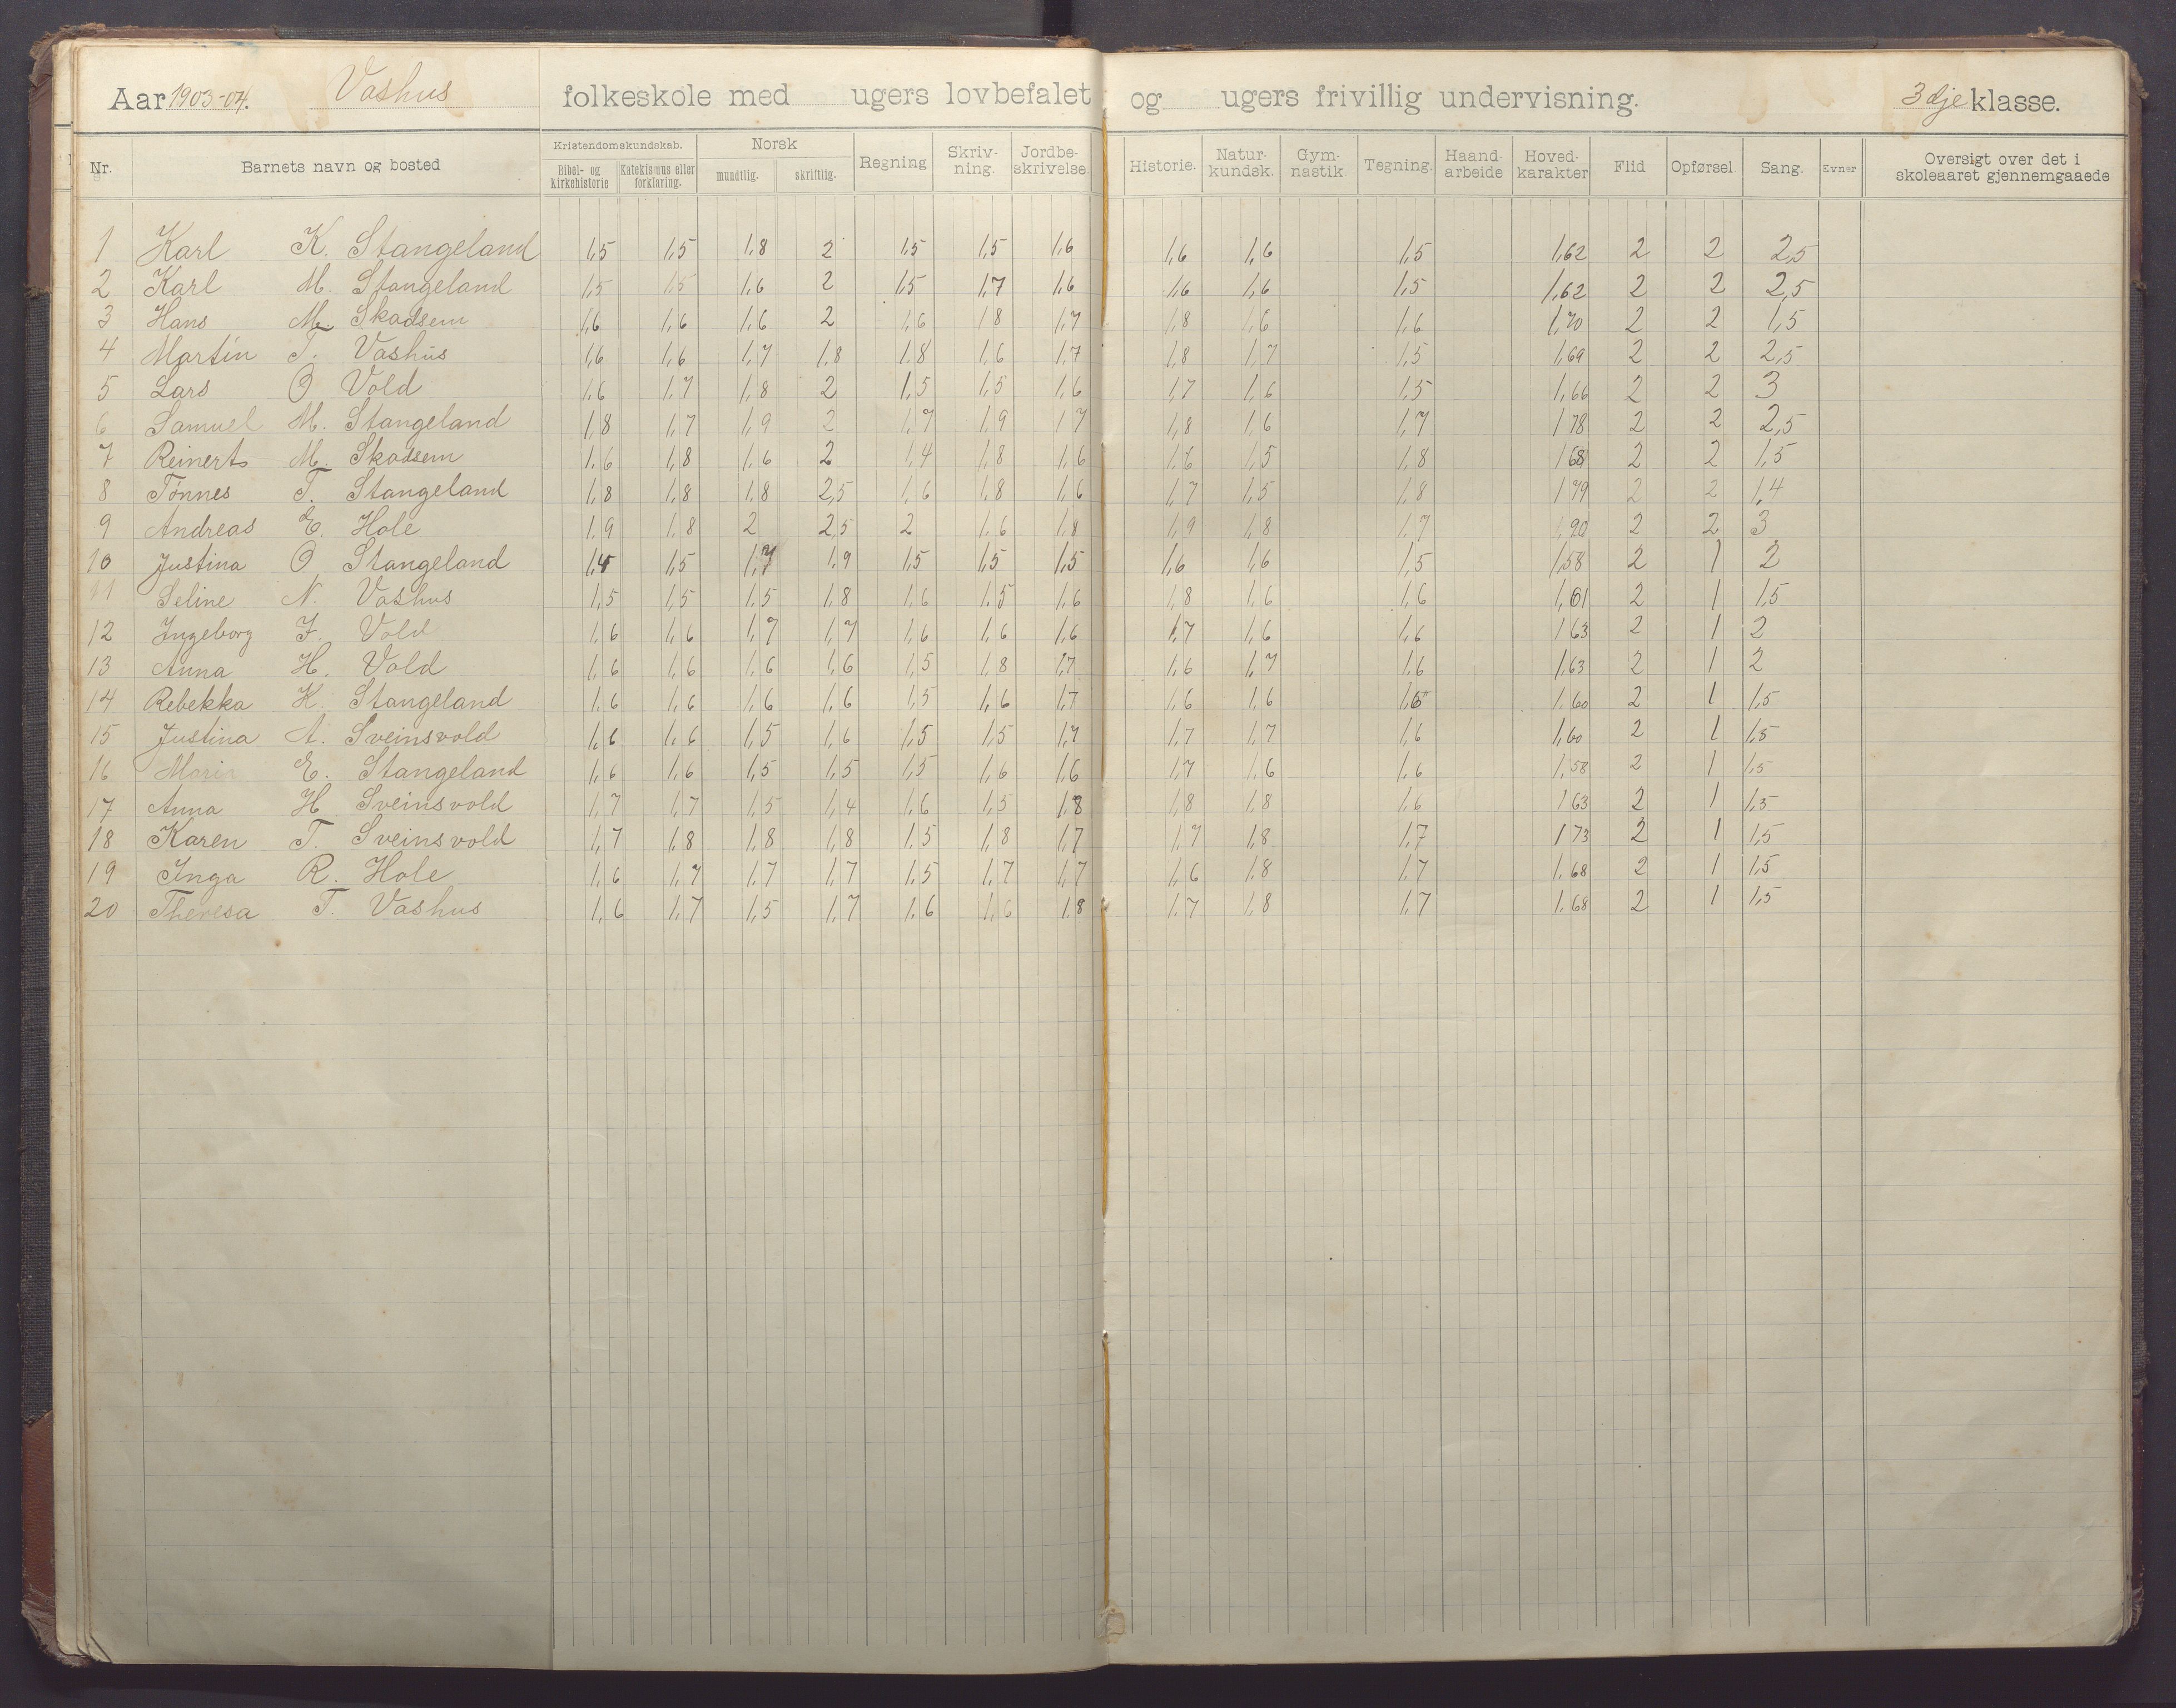 Aar 1903-04. Vashus folkeskole med ugers lovbefalet og ugers frivillig undervisning. 3dje klasse.
Nr. Barnets navn og bosted Kristendomskundskab. Bibel- og kirkehistorie Katekismus eller forklaring. Norsk mundtlig. skriftlig. Regning Skriv-ning. Jordbe-skrivelse Historie. Natur-kundsk. Gym-nastik Tegning. Haand-arbeide Hoved-karakter Flid Opførsel Sang. Evner Oversigt over det i skoleaaret gjennemgaaede
1 Karl K. Stangeland 1,5 1,5 1,8 2 1,5 1,5 1,6 1,6 1,6 1,5 1,62 2 2 2,5
2. Karl M. Stangeland 1,5 1,5 1,6 2 1,5 1,7 1,6 1,6 1,6 1,5 1,62 2 2 2,5
3 Hans M. Skadsem 1,6 1,6 1,6 2 1,6 1,8 1,7 1,8 1,6 1,6 1,70 2 2 1,5
4 Martin T. Vashus 1,6 1,6 1,7 1,8 1,8 1,6 1,7 1,8 1,7 1,5 1,69 2 2 2,5
5 Lars O Vold 1,6 1,7 1,8 2 1,5 1,5 1,6 1,7 1,6 1,5 1,66 2 2 3
6 Samuel M. Stangeland 1,8 1,7 1,9 2 1,7 1,9 1,7 1,8 1,6 1,7 1,78 2 2 2,5
7 Reinert M. Skadsem 1,6 1,8 1,6 2 1,4 1,8 1,6 1,6 1,5 1,8 1,68 2 2 1,5
8 Tønnes T. Stangeland 1,8 1,8 1,8 2,5 1,6 1,8 1,6 1,7 1,5 1,8 1,79 2 2 1,4
9 Andreas E. Hole 1,9 1,8 2 2,5 2 1,6 1,8 1,9 1,8 1,7 1,90 2 2 3
10 Justina O Stangeland 1,4 1,5 1,7 1,9 1,5 1,5 1,5 1,6 1,6 1,5 1,58 2 1 2
11 Seline N. Vashus 1,5 1,5 1,5 1,8 1,6 1,5 1,6 1,8 1,6 1,6 1,61 2 1 1,5
12 Ingeborg J. Vold 1,6 1,6 1,7 1,7 1,6 1,6 1,6 1,7 1,6 1,6 1,63 2 1 2
13 Anna H. Vold 1,6 1,6 1,6 1,6 1,5 1,8 1,7 1,6 1,7 1,6 1,63 2 1 2
14 Rebekka K. Stangeland 1,6 1,6 1,6 1,6 1,5 1,6 1,7 1,6 1,6 1,6 1,60 2 1 1,5
15 Justina A. Sveinsvold 1,6 1,6 1,5 1,6 1,5 1,5 1,7 1,7 1,7 1,6 1,60 2 1 1,5
16 Marie E. Stangeland 1,6 1,6 1,5 1,5 1,5 1,6 1,6 1,7 1,6 1,6 1,58 2 1 1,5
17 Anna H. Sveinsvold 1,7 1,7 1,5 1,4 1,6 1,5 1,8 1,8 1,8 1,6 1,63 2 1 1,5
18 Karen T. Sveinsvold 1,7 1,8 1,8 1,8 1,5 1,8 1,7 1,7 1,8 1,7 1,73 2 1 1,5
19 Inga R. Hole 1,6 1,7 1,7 1,7 1,5 1,7 1,7 1,6 1,8 1,7 1,68 2 1 1,5
20 Theresa T. Vashus 1,6 1,7 1,5 1,7 1,6 1,6 1,8 1,7 1,8 1,7 1,68 2 1 1,5